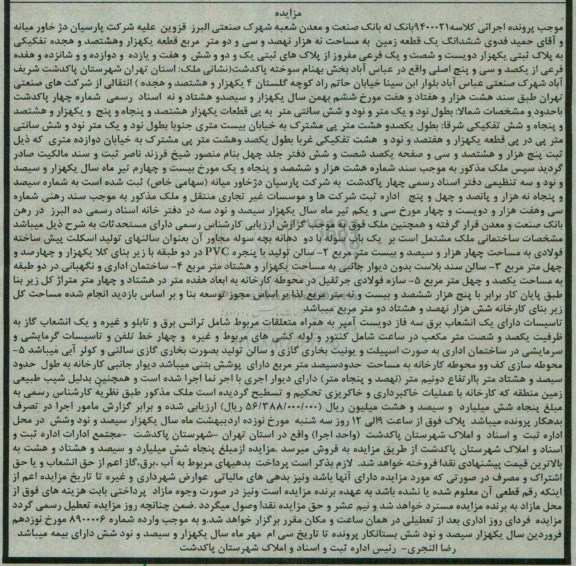 مزایده
موجب پرونده اجرائی کلاسه۹۴۰۰۰۲۱بانک له بانک صنعت و معدن شعبه شهرک صنعتی البرز قزوین علیه شرکت پارسیان دژ خاور میانه
و آقای حمید فدوی ششدانگ یک قطعه زمین به مساحت نه هزار نهصد و سی و دو متر مربع قطعه یکهزار وهشتصد و هجده تفکیکی
به پلاک ثبتی یکهزار دویست و شصت و یک فرعی مفروز از پلاک های ثبتی یک و دو و شش و هفت و یازده و دوازده و و شانزده و هفده
فرعی از یکصد و سی و پنج اصلی واقع در عباس آباد بخش بهنام سوخته پاکدشت(نشانی ملک: استان تهران شهرستان پاکدشت شریف
آباد شهرک صنعتی عباس آباد بلوار ابن سینا خیابان حاتم راد کوچه گلستان ۴ یکهزار و هشتصد و هجده ) انتقالی از شرکت های صنعتی
تهران طبق سند هشت هزار و هفتاد و هفت مورخ ششم بهمن سال یکهزار و سیصدو هشتاد و نه اسناد رسمی شماره چهار پاکدشت
باحدود و مشخصات شمالا: بطول نود و یک متر و نود و شش سانتی متر به پی قطعات یکهزار هشتصد و پنجاه و پنج و یکهزار و هشتصد
و پنجاه و شش تفکیکی شرقا: بطول یکصدو هشت متر پی مشترک به خیابان بیست متری جنوبا بطول نود و یک متر نود و شش سانتی
متر پی در پی قطعه یکهزار و هفتصد و نود و هشت تفکیکی غربا بطول یکصد وهشت متر پی مشترک به خیابان دوازده متری که ذیل
ثبت پنج هزار و هشتصد و سی و صفحه یکصد شصت و شش دفتر جلد چهل بنام منصور شیخ فرزند ناصر ثبت و سند مالکیت صادر
گردید سپس ملک مذکور به موجب سند شماره هشت هزار و ششصد و پنجاه و یک مورخ بیست و چهارم تیر ماه سال یکهزار و سیصد
و نود و سه تنظیمی دفتر اسناد رسمی چهار پاکدشت به شرکت پارسیان دژخاور میانه (سهامی خاص) ثبت شده است به شماره سیصد
و پنجاه نه هزار و پانصد و چهل و پنج اداره ثبت شرکت ها و موسسات غیر تجاری منتقل و ملک مذکور به موجب سند رهنی شماره
سی وهفت هزار و دویست و چهار مورخ سی و یکم تیر ماه سال یکهزار سیصد و نود سه در دفتر خانه اسناد رسمی ده البرز در رهن
بانک صنعت و معدن قرار گرفته و همچنین ملک فوق به موجب گزارش ارزیابی کارشناس رسمی دارای مستحدثات به شرح ذیل میباشد
مشخصات ساختمانی ملک مشتمل است بر یک باب سوله با دو دهانه بچه سوله مجاور آن بعنوان سالنهای تولید اسکلت پیش ساخته
فولادی به مساحت چهار هزار و سیصد و بیست متر مربع ۲- سالن تولید با پنجره PVC در دو طبقه با زیر بنای کلا یکهزار و چهارصد و
چهل متر مربع ۳- سالن سند بلاست بدون دیوار جانبی به مساحت یکهزار و هشتاد متر مربع ۴- ساختمان اداری و نگهبانی در دو طبقه
به مساحت یکصد و چهل متر مربع ۵- سازه فولادی جرثقیل در محوطه کارخانه به ابعاد هفده متر در هشتاد و چهار متر متراژ کل زیر بنا
طبق پایان کار برابر با پنج هزار ششصد و بیست و نه متر مربع لذا بر اساس مجوز توسعه بنا و بر اساس بازدید انجام شده مساحت کل
زیر بنای کارخانه شش هزار نهصد و هشتاد دو متر مربع میباشد
تاسیسات دارای یک انشعاب برق سه فاز دویست آمپر به همراه متعلقات مربوط شامل ترانس برق و تابلو و غیره و یک انشعاب گاز به
ظرفیت یکصد و شصت متر مکعب در ساعت شامل کنتور و لوله کشی های مربوط و غیره و چهار خط تلفن و تاسیسات گرمایشی و
سرمایشی در ساختمان اداری به صورت اسپیلت و یونیت بخاری گازی و سالن تولید بصورت بخاری گازی سالنی و کولر آبی میباشد ۵-
محوطه سازی کف وو محوطه کارخانه به مساحت حدودسیصد متر مربع دارای پوشش بتنی میباشد دیوار جانبی کارخانه به طول حدود
سیصد و هشتاد متر باارتفاع دونیم متر (نهصد و پنجاه متر) دارای دیوار اجری با اجر نما اجرا شده است و همچنین بدلیل شیب طبیعی
زمین منطقه که کارخانه با عملیات خاکبرداری و خاکریزی تحکیم و تسطیح گردیده است ملک مذکور طبق نظریه کارشناس رسمی به
مبلغ پنجاه شش میلیارد و سیصد و هشت میلیون ریال (۵۶/۳۸۸/۰۰۰/۰۰۰ ریال) ارزیابی شده و برابر گزارش مامور اجرا در تصرف
بدهکار پرونده میباشد پلاک فوق از ساعت ۹الی ۱۲ روز سه شنبه مورخ نوزده اردیبهشت ماه سال یکهزار سیصد و نود وشش در محل
اداره ثبت و اسناد و املاک شهرستان پاکدشت (واحد اجرا) واقع در استان تهران –شهرستان پاکدشت -مجتمع ادارات اداره ثبت و
اسناد و املاک شهرستان پاکدشت از طریق مزایده به فروش میرسد .مزایده ازمبلغ پنجاه شش میلیارد و سیصد و هشتاد و هشت به
بالاترین قیمت پیشنهادی نقدا فروخته خواهد شد. لازم بذکر است پرداخت بدهیهای مربوط به آب ،برق،گاز اعم از حق انشعاب و یا حق
اشتراک و مصرف در صورتی که مورد مزایده دارای آنها باشد ونیز بدهی های مالیاتی عوارض شهرداری و غیره تا تاریخ مزایده اعم از
اینکه رقم قطعی آن معلوم شده یا نشده باشد به عهده برنده مزایده است ونیز در صورت وجود مازاد پرداختی بابت هزینه های فوق از
محل مازاد به برنده مزایده مسترد خواهد شد و نیم عشر و حق مزایده نقدا وصول میگردد .ضمن چنانچه روز مزایده تعطیل رسمی گردد
مزایده فردای روز اداری بعد از تعطیلی در همان ساعت و مکان مقرر برگزار خواهد شد.و به موجب وارده شماره ۸۹۰۰۰۰۶ مورخ نوزدهم
فروردین سال یکهزار سیصد و نود شش بستانکار پرونده تا تاریخ سی ام مهر ماه سال یکهزار و سیصد و نود شش دارای بیمه میباشد
رضا النجری- رئیس اداره ثبت و اسناد و املاک شهرستان پاکدشت